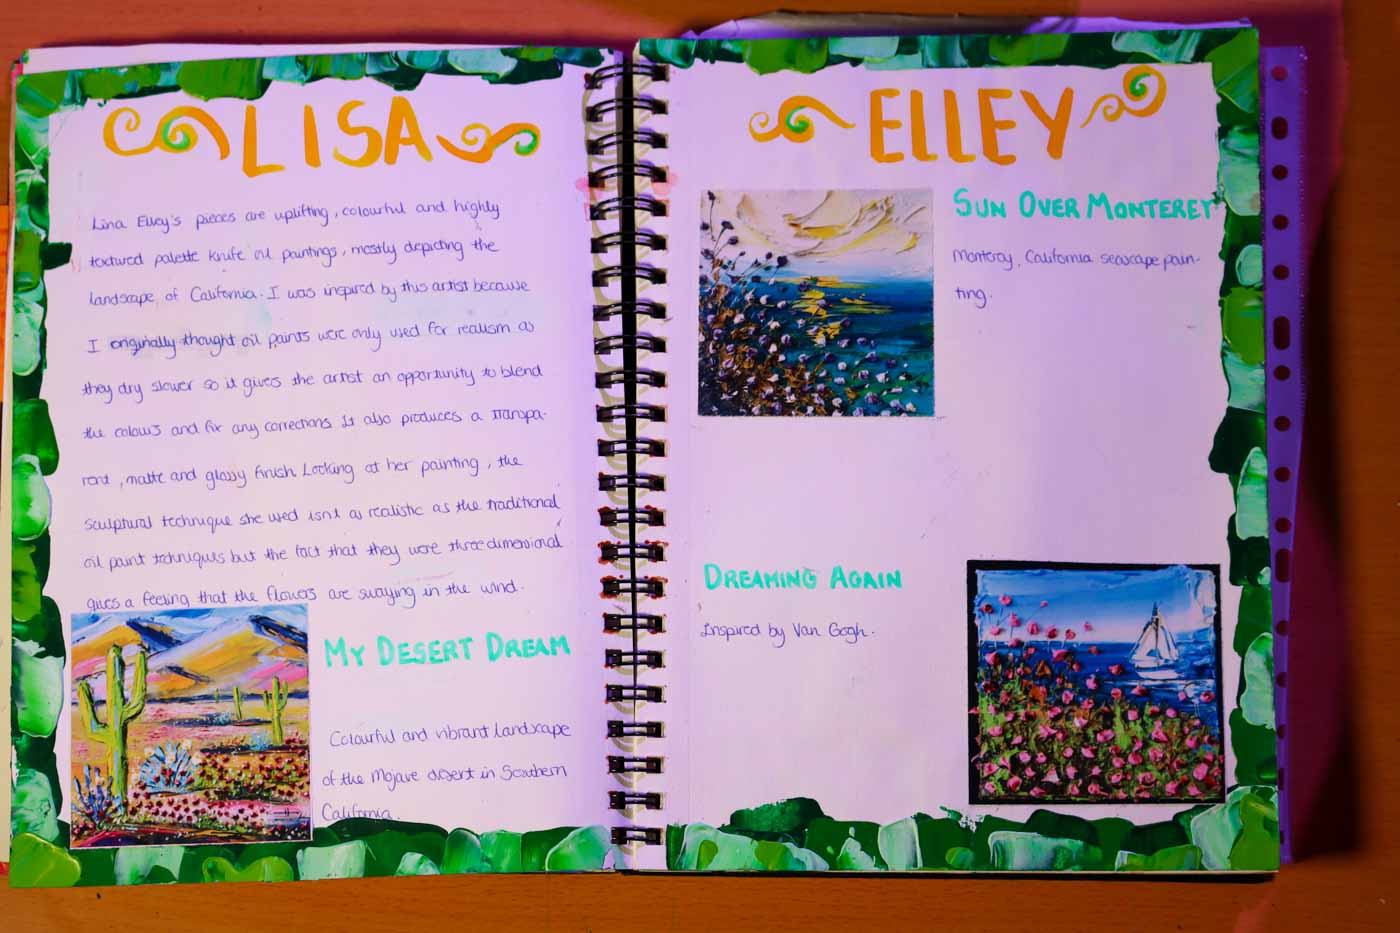 LISA
Lina Elley's pieces are uplifting, colourful and highly
textured palette knife oil paintings, mostly depicting the
landscape of California. I was inspired by this artist because
I originally thought oil paints were only used for realism as
they dry slower so it gives the artist an opportunity to blend
the colours and fix any corrections. It also produces a transpa-
rent, matte and glassy finish. Looking at her painting, the
sculptural technique she used isn't as realistic as the traditional
oil paint techniques but the fact that they were three dimensional
gives a feeling that the flowers are swaying in the wind.
MY DESERT DREAM
Colourful and vibrant landscape
of the Mojave desert in Southern
California.
ELLEY
SUN OVER MONTEREY
Monteray, California seascape pain-
ting.
DREAMING AGAIN
Inspired by Van Gogh.